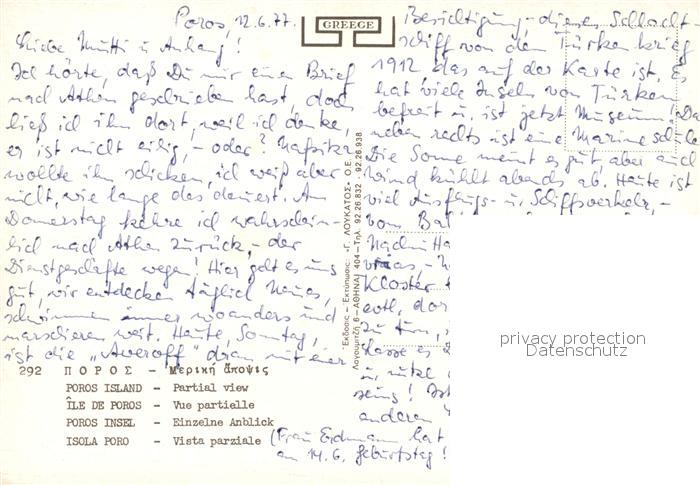 Poros, 12.6.77.
Liebe Mutti u. Anhang!
Ich hörte, daß Du mir einen Brief
nach Athen geschrieben hast, doch
ließ ich ihn dort, weil ich denke,
er ist nicht eilig, - oder?
wollte ihn schicken, ich weiß aber
nicht, wie lange das dauert. Am
Donnerstag kehre ich wahrschein-
lich nach Athen zurück, - der
Dienstgeschäfte wegen! Hier geht es uns
gut, wir entdecken täglich Neues,
schwimmen immer woanders und
marschieren weit. Heute, Sonntag,
ist die „Averoff" dran mit einer
GREECE
Besichtigung, - dieses Schlacht-
schiff von dem Türkenkrieg
1912 das auf der Karte ist. Es
hat viele Inseln von Türken
befreit u. ist jetzt Museum. Da
neben rechts ist eine Marineschule
Die Sonne meint es gut, aber auch
Wind kühlt abends ab. Heute ist
viel Ausflugs- u. Schiffsverkehr, -
vom
Nachmitta
Kloster
evtl. dor
zu tun,
lasse es
u.
anderen
(Frau Erdmann hat
am 14.6. Geburtstag!
Έκδοσις - Εκτύπωσις: «Γ. ΛΟΥΚΑΤΟΣ» Ο.Ε.
Λογουμιτζή 6 - ΑΘΗΝΑΙ 404 - Τηλ. 92.26.832 - 92.26.938
292 ΠΟΡΟΣ - Μερική ἄποψις
POROS ISLAND - Partial view
ÎLE DE POROS - Vue partielle
POROS INSEL - Einzelne Anblick
ISOLA PORO - Vista parziale
privacy protection
Datenschutz